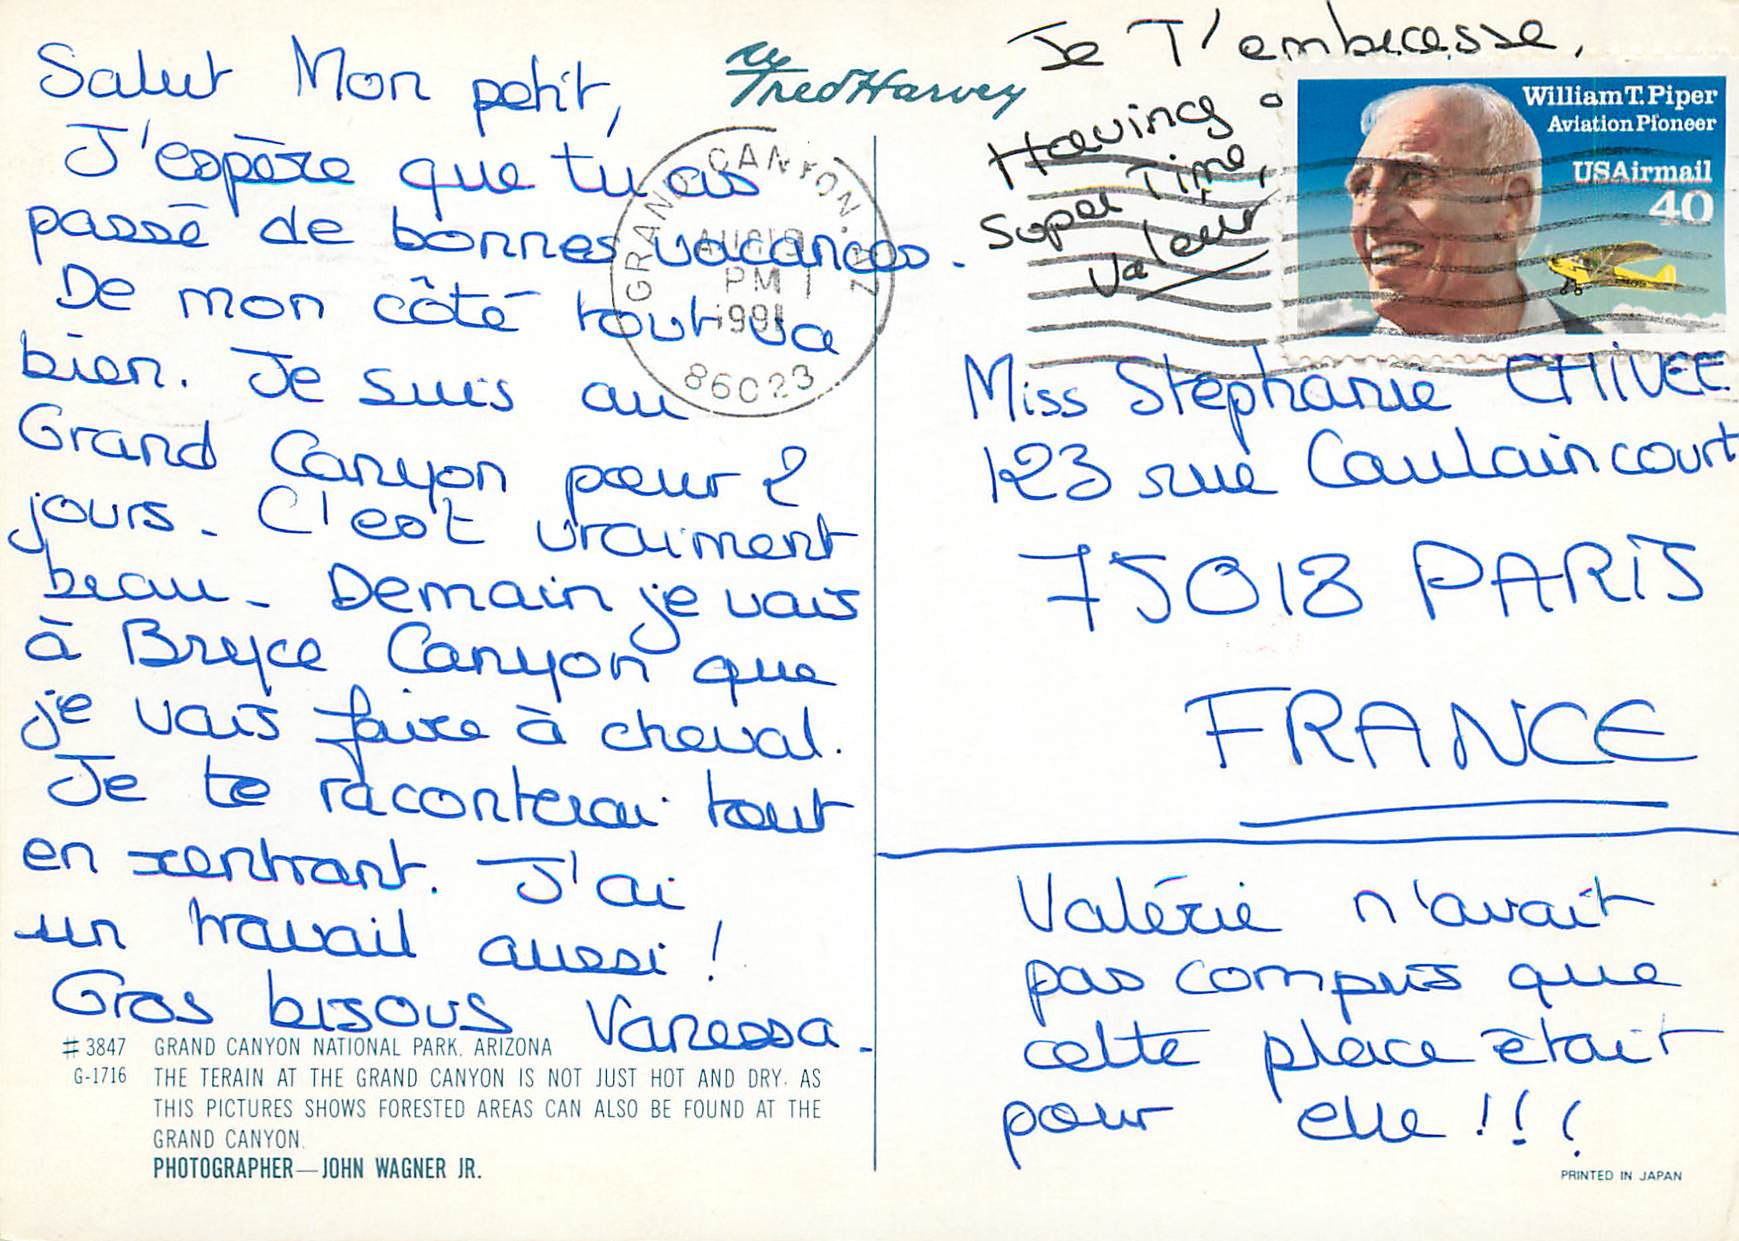 Salut Mon petit,
J'espère que tu as
passé de bonnes vacances.
De mon côté tout va
bien. Je suis au
Grand Canyon pour 2
jours. C'est vraiment
beau. Demain je vais
à Bryce Canyon que
je vais faire à cheval.
Je te raconterai tout
en rentrant. J'ai
un travail aussi !
Gros bisous Vanessa.
#3847 GRAND CANYON NATIONAL PARK, ARIZONA
G-1716 THE TERAIN AT THE GRAND CANYON IS NOT JUST HOT AND DRY. AS
THIS PICTURES SHOWS FORESTED AREAS CAN ALSO BE FOUND AT THE
GRAND CANYON.
PHOTOGRAPHER—JOHN WAGNER JR.
Fred Harvey
GRAND CANYON, AZ
PM
1991
86023
Je T'embrasse,
Having a
Super Time,
William T. Piper
Aviation Pioneer
USAirmail
40
Miss Stéphanie CHIVEE
123 rue Caulaincourt
75018 PARIS
FRANCE
Valérie n'avait
pas compris que
cette place était
pour elle !!!
PRINTED IN JAPAN